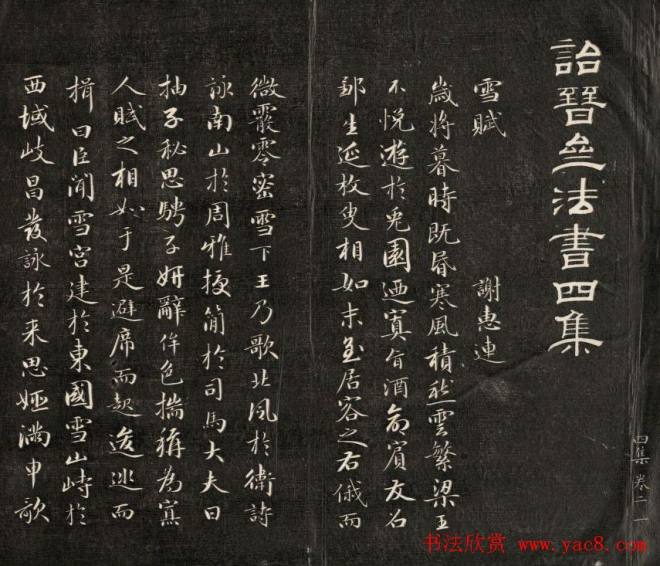 詒晉齋法書四集
雪賦
謝惠連
歲將暮時既昏寒風積愁雲繁梁王
不悅游於兔園廼寘旨酒命賓友召
鄒生延枚叟相如末至居客之右俄而
微霰零密雪下王乃歌北風於衛詩
詠南山於周雅授簡於司馬大夫曰
抽子秘思騁子妍辭侔色揣稱為寡
人賦之相如于是避席而起逡巡而
揖曰臣聞雪宮建於東國雪山峙於
西域岐昌發詠於來思姬滿申歌
四集 卷二 一
书法欣赏 www.yac8.com